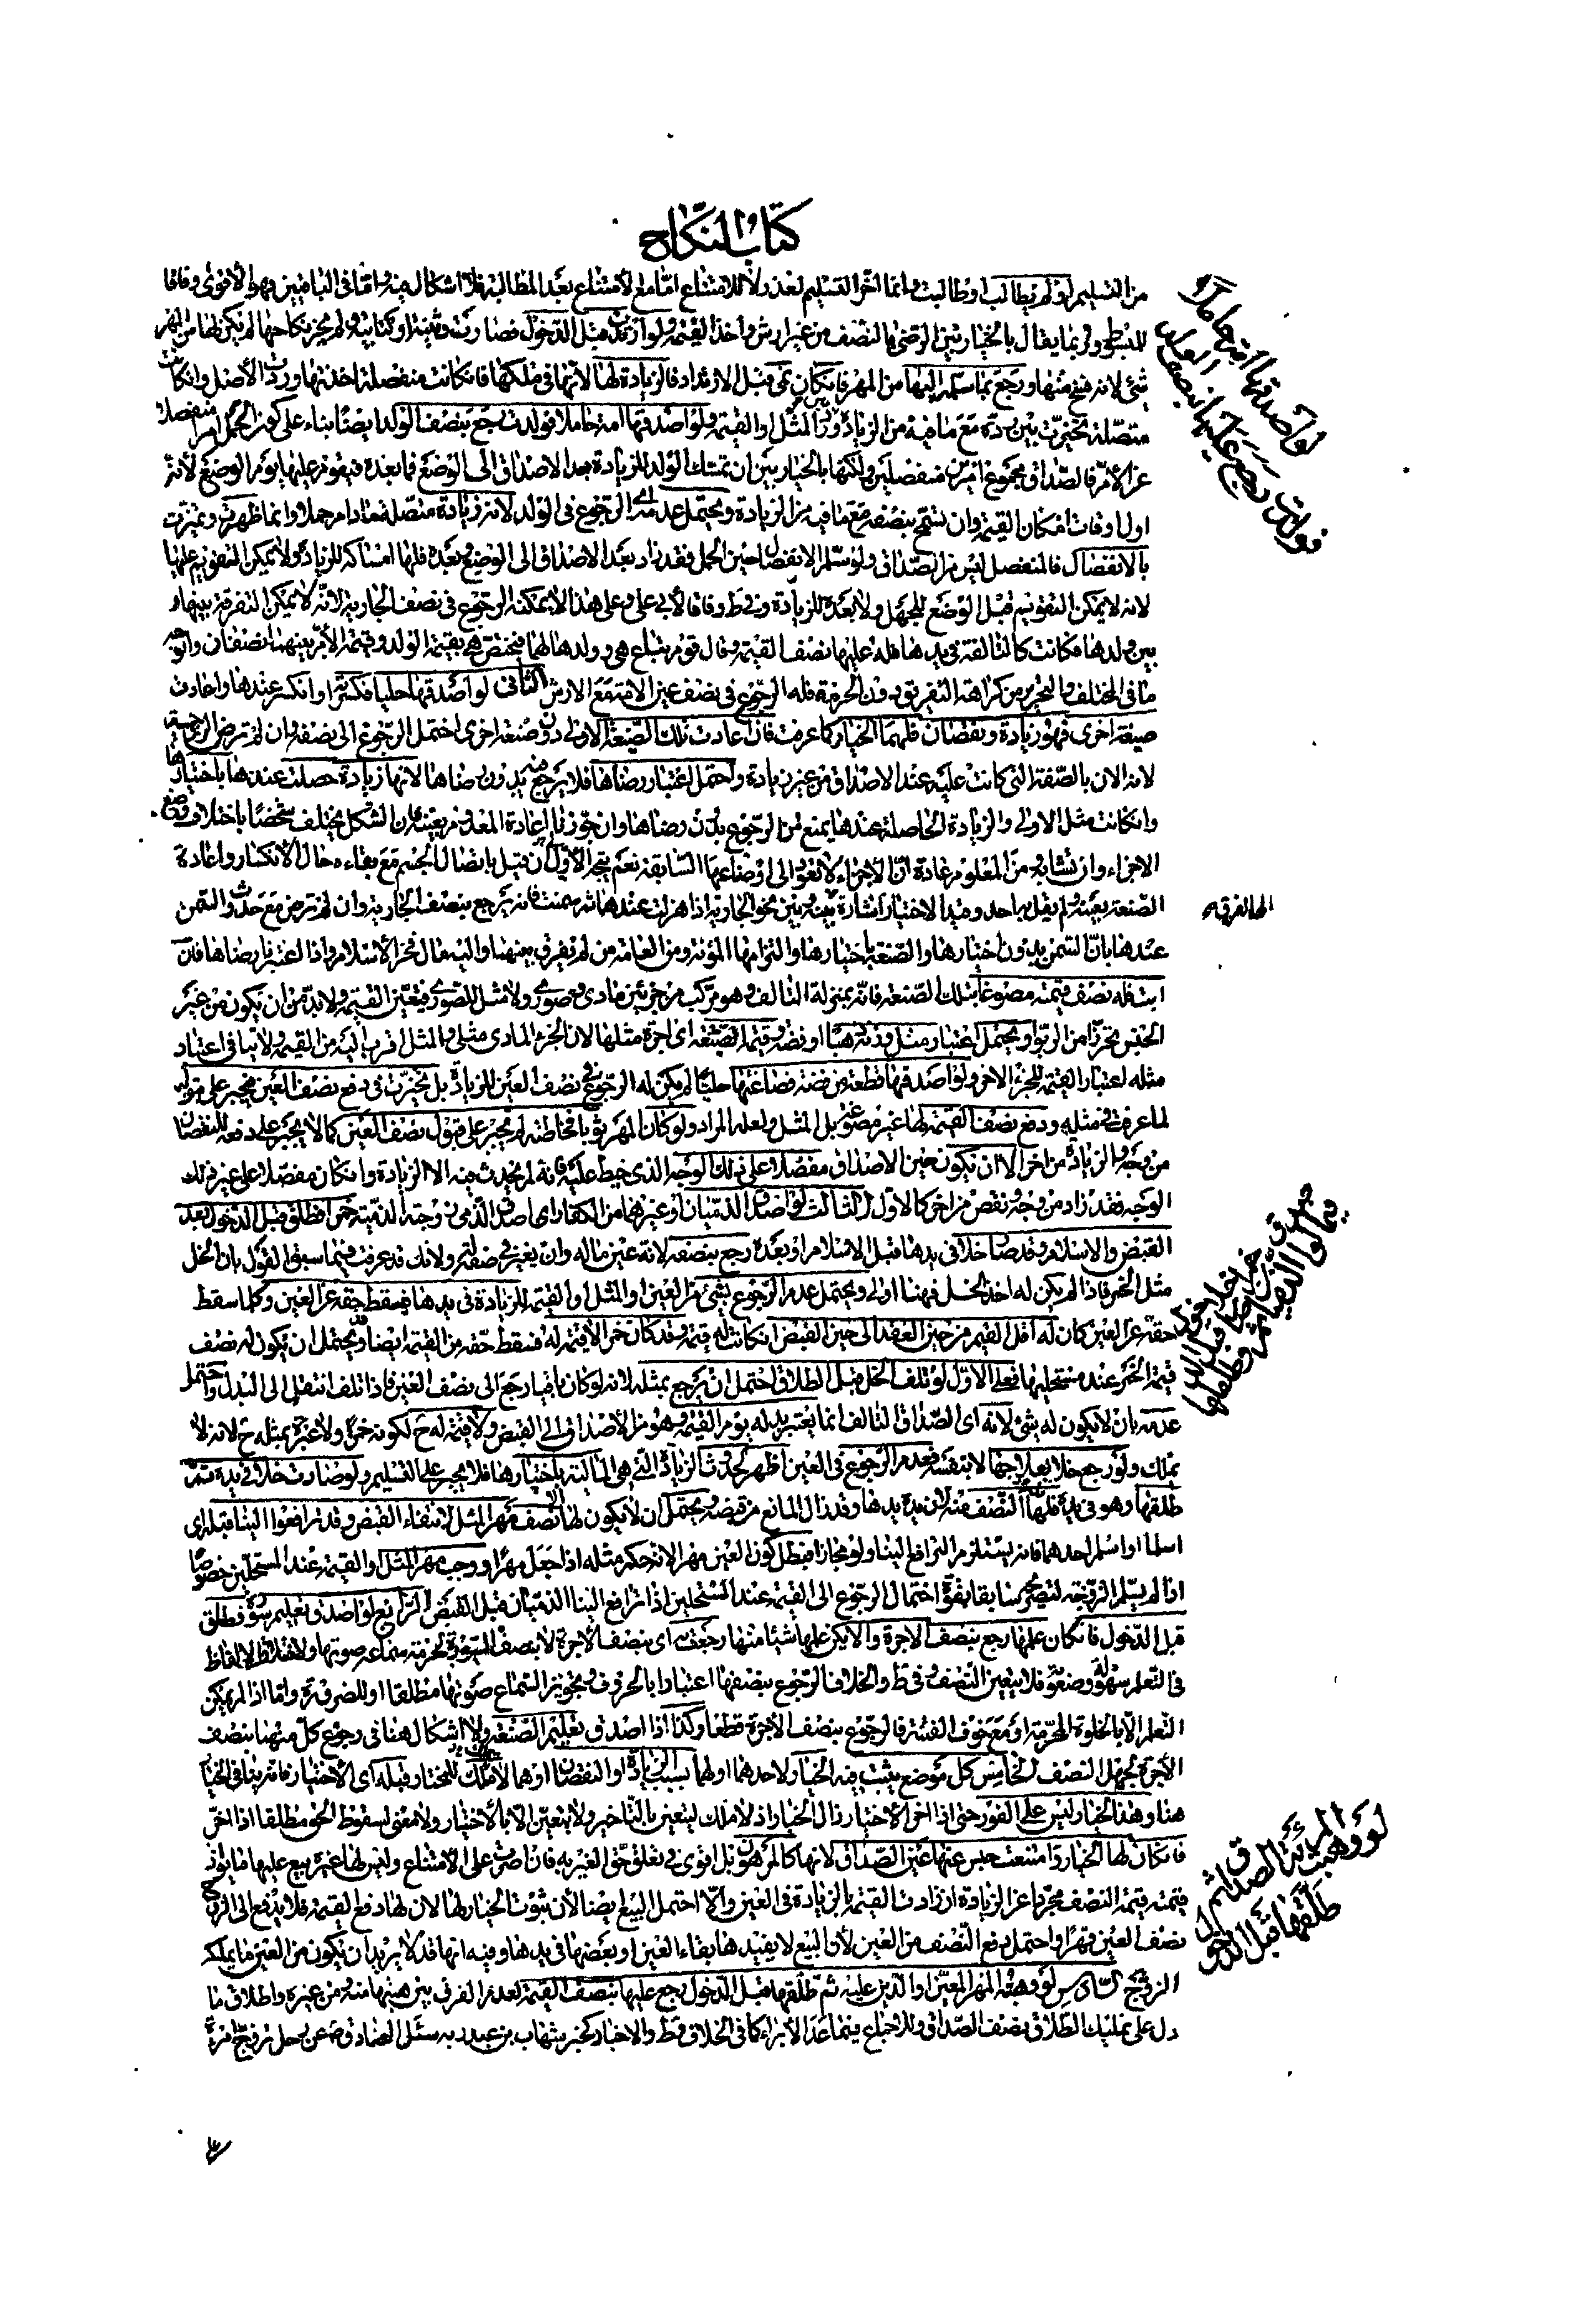 كتاب النكاح
من التسليم او لم يطالب او طالبت وانما اخر التسليم لعذر لا للامتناع امّا مع الامتناع بعد المطالبة فلا اشكال فيه واما في الباقيين فهو الاقوى وفاقا
للمبسوط وربما يقال بالخيار بين الرضى بالنصف من غير ارش واخذ القيمة ولو ارتدت قبل الدخول فصارت وثنية او كتابية ولم يجز نكاحها لم يكن لها من المهر
شئ لانه فسخ منها ورجع بما سلمه اليها من المهر فان كان نمى قبل الارتداد فالزيادة لها لأنها في ملكها فان كانت منفصلة اخذتها وردت الأصل وان كانت
متصلة تخيرت بين رده مع ما فيه من الزيادة ورد المثل او القيمة ولو اصدقها امة حاملا فولدت رجع بنصف الولد ايضا بناء على كون الحمل امرا منفصلا
عن الأم فالصداق مجموع امرين منفصلين ولكنها بالخيار بين ان تمسك الولد للزيادة بعد الاصداق الى الوضع فما بعده فيقوم عليها يوم الوضع لأنه
اول اوقات امكان القيمة وان تسمح بنصفه مع ما فيه من الزيادة ويحتمل عدمه اى الرجوع في الولد لانه زيادة متصلة ما دام حملا وانما ظهرت وتميزت
بالانفصال فالمنفصل ليس من الصداق ولو سلم الانفصال حين الحمل فقد زاد بعد الاصداق الى الوضع وبعده فلها امساكه للزيادة ولا يمكن التقويم عليها
لانه لا يمكن التقويم قبل الوضع للجهل ولا بعده للزيادة وفي ط وفاقا لأبي على وعلى هذا لا يمكنه الرجوع في نصف الجارية لانه لا يمكن التفرقة بينها و
بين ولدها فكانت كالتالفة في يدها فله عليها نصف القيمة وقال قوم يتباع هي وولدها لهما فيختص هي بقيمة الولد وقيمة الأم بينهما نصفان والوجه
ما في المختلف والتحرير من كراهة التفريق دون الحرمة فله الرجوع في نصف عين الامة مع الارش الثاني لو اصدقها حليا فكسرته او انكسر عندها واعادت
صيغة اخرى فهو زيادة ونقصان فلهما الخيار كما عرفت فان اعادت تلك الصيغة الاولى دون صنعة اخرى احتمل الرجوع الى نصفه وان لم ترض الزوجة
لانه الان بالصفة التي كانت عليه عند الاصداق من غير زيادة واحتمل اعتبار رضاها فلا يرجع فيه بدون رضاها لانها زيادة حصلت عندها باختيارها
وان كانت مثل الاولى والزيادة الحاصلة عندها يمنع من الرجوع بدون رضاها وان جوزنا اعادة المعدوم بعينه فان الشكل مختلف شخصا باختلاف وضع
الاجزاء وان تشابه ومن المعلوم عادة ان الاجزاء لا تعود الى اوضاعها السابقة نعم يتجه الاول ان قيل باتصال الجسم مع بقاءه حال الانكسار واعادة
الصنعة بعينه ولم يقل به احد وقيد الاختيار اشارة الى الفرق بينه وبين نحو الجارية اذا هزلت عندها ثم سمنت فانه يرجع بنصف الجارية وان لم ترض مع حدوث السمن
عندها بان السمن بدون اختيارها والصنعة باختيارها والتزامها المؤنة ومن العامة من لم يفرق بينهما واليه مال فخر الاسلام واذا اعتبرنا رضاها فان
ابت فله نصف قيمته مصوغا بتلك الصنعة فانه بمنزلة التالف وهو مركب من جزئين مادى وصورى ولا مثل للصورى فيتعين القيمة ولا بد من ان يكون من غير
الجنس تحرزا من الربوا ويحتمل اعتبار مثل وزنه ذهبا او فضة وقيمة الصنعة اى اجرة مثلها لان الجزء المادى مثلى والمثل اقرب اليه من القيمة ولا ينافي اعتبار
مثله اعتبار القيمة للجزء الاخر ولو اصدقها قطعة من فضة فصاغتها حليا لم يكن له الرجوع في نصف العين للزيادة بل تخيرت في دفع نصف العين فيجبر على قبوله
لما عرفت في مثله ودفع نصف القيمة لها غير مصوغة بل المثل ولعله المراد ولو كان المهر ثوبا فخاطته لم يجبر على قبول نصف العين كما لا يجبر على دفعه للنقصان
من وجه والزيادة من اخر الا ان يكون حين الاصداق مفصلا على ذلك الوجه الذى خيط عليه فانه لم يحدث فيه الا الزيادة وان كان مفصلا على غير ذلك
الوجه فقد زاد من وجه ونقص من اخر كالأول الثالث لو اصدق الذميان او غيرهما من الكفار اى اصدق الذمى زوجته الذمية خمرا فطلق قبل الدخول بعد
القبض والاسلام وقد صار خلا في يدها قبل الاسلام او بعده رجع بنصفه لانه عين ماله وان تغيرت صفته ولانك قد عرفت فيما سبق القول بان الخل
مثل الخمر فاذا لم يكن له اخذ الخل فهنا اولى ويحتمل عدم الرجوع بشئ من العين او المثل او القيمة للزيادة في يدها فيسقط حقه عن العين وكلما سقط
حقه عن العين كان له اقل القيم من حين العقد الى حين القبض ان كانت له قيمة وقد كان خمرا لا قيمة له فسقط حقه من القيمة ايضا ويحتمل ان يكون له نصف
قيمة الخمر عند مستحليها فعلى الأول لو تلف الخل قبل الطلاق احتمل ان يرجع بمثله لانه لو كان باقيا رجع الى نصف العين فاذا تلف انتقل الى البدل واحتمل
عدمه بان لا يكون له شئ لانه اى الصداق التالف انما يعتبر بدله يوم القيمة وهو من الأصداق الى القبض ولا قيمة له ح لكونه خمرا ولا عبرة بمثله ح لانه لا
يملك ولو رجع خلا بعلاجها لا بنفسه فعدم الرجوع في العين اظهر لحدوث الزيادة التي هي المالية باختيارها فلا يجبر على التسليم ولو صارت خلا في يده ثم
طلقها وهو في يده فلها النصف منه لان يده يدها وقد زال المانع من قبضه ويحتمل ان لا يكون لها الا نصف مهر المثل لانتفاء القبض وقد ترافعوا الينا قبله اى
اسلما او اسلم احدهما فانه يستلزم الترافع الينا ولو مجازا فبطل كون العين مهرا لانه حكم مثله اذا جعل مهرا ووجب مهر المثل او القيمة عند المستحلين خصوصا
قبل الدخول فان كان علمها رجع بنصف الاجرة والا يكن علمها شيئا منها رجعت اى بنصف الاجرة لا بنصف السورة لحرمة سماعه صوتها ولاختلاط الالفاظ
في التعلم سهولة وصعوبة فلا يتعين النصف وفي ط والخلاف الرجوع بنصفها اعتبارا بالحروف وتجويز السماع صوتها مطلقا او للضرورة واما اذا لم يمكن
التعلم الا بالخلوة المحرمة او مع خوف الفتنة فالرجوع بنصف الاجرة قطعا وكذا اذا اصدق تعليم الصنعة ولا اشكال هنا في رجوع كل منهما بنصف
الاجرة لجهل النصف الخامس كل موضع يثبت فيه الخيار لاحدهما او لهما بسبب الزيادة او النقصان او هما لا يملك المختار قبله اى الاختيار فانه ينافي الخيار
هنا وهذا الخيار ليس على الفور حتى اذا اخر الاختيار زال الخيار اذ لا ملك ليتعين بالتاخير ولا يتعين الا بالاختيار ولا معنى لسقوط الحق مطلقا اذا اخر
فان كان لها الخيار وامتنعت حبس عنها عين الصداق لانها كالمرهون بل اقوى في تعلق حق الغير به فان اصرت على الامتناع وليس لها غيره بيع عليها ما يوفى
قيمته قيمة النصف مجردا عن الزيادة ان زادت القيمة بالزيادة في العين والا احتمل البيع ايضا لأن ثبوت الخيار لها لان لها دفع القيمة فلا يدفع الى الزوج
نصف العين قهرا واحتمل دفع النصف من العين لأن البيع لا يفيدها بقاء العين او بعضها في يدها وفيه انها قد لا يريد ان يكون من العين ما يملكه
الزوج السادس لو وهبته المهر المعين او الدين عليه ثم طلقها قبل الدخول رجع عليها بنصف القيمة لعدم الفرق بين هبتها منه ومن غيره واطلاق ما
دل على تمليك الطلاق نصف الصداق وللاجماع فيما عدا الأبراء كما في الخلاف وط والاخبار كخبر شهاب بن عبد ربه سئل الصادق ع عن رجل تزوج امرأة
لو اصدقها امة حاملا
فولدت رجع عليها بنصف الولد
الى الفرق
لو وهبت المرأة الصداق ثم
طلقها قبل الدخول